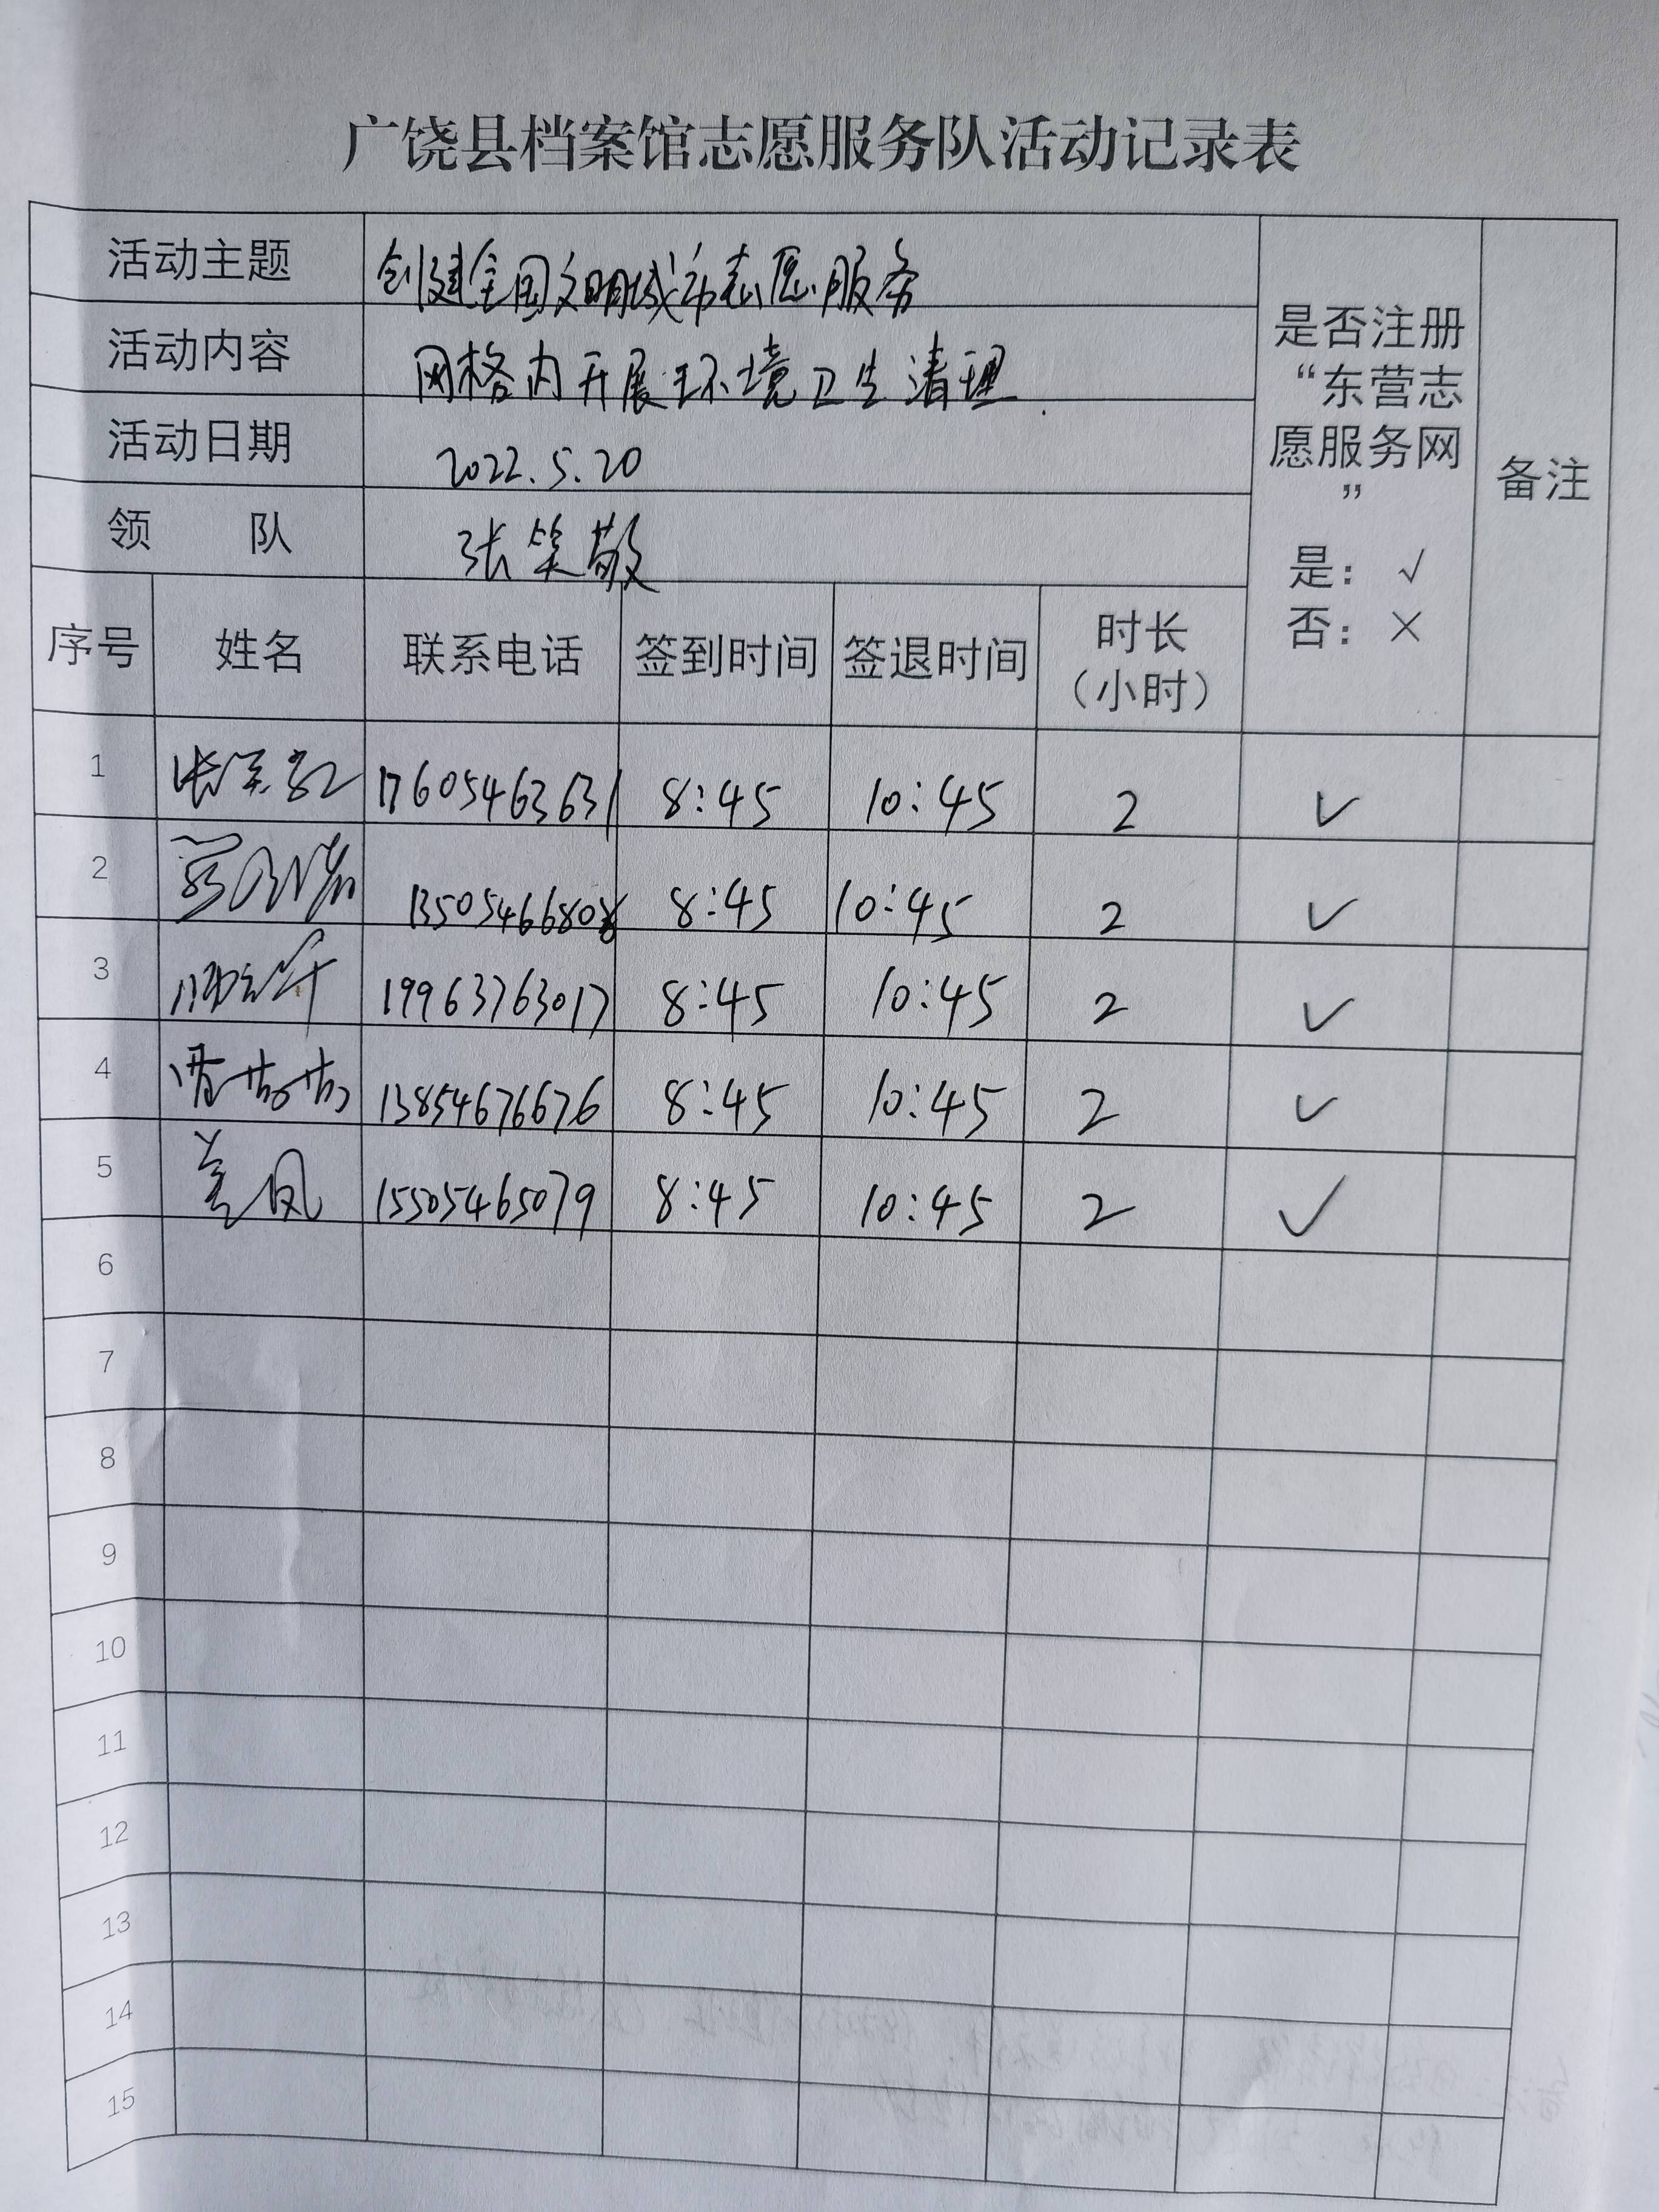 广饶县档案馆志愿服务队活动记录表
活动主题 创建全国文明城市志愿服务
活动内容 网格内开展环境卫生清理
活动日期 2022.5.20
领 队 张笑敬
是否注册
“东营志
愿服务网
”
是：√
否：×
备注
序号 姓名 联系电话 签到时间 签退时间 时长
（小时）
1 17605463631 8:45 10:45 2 ✓
2 8:45 10:45 2 ✓
3 19963763017 8:45 10:45 2 ✓
4 13854676676 8:45 10:45 2 ✓
5 15505465079 8:45 10:45 2 ✓
6
7
8
9
10
11
12
13
14
15